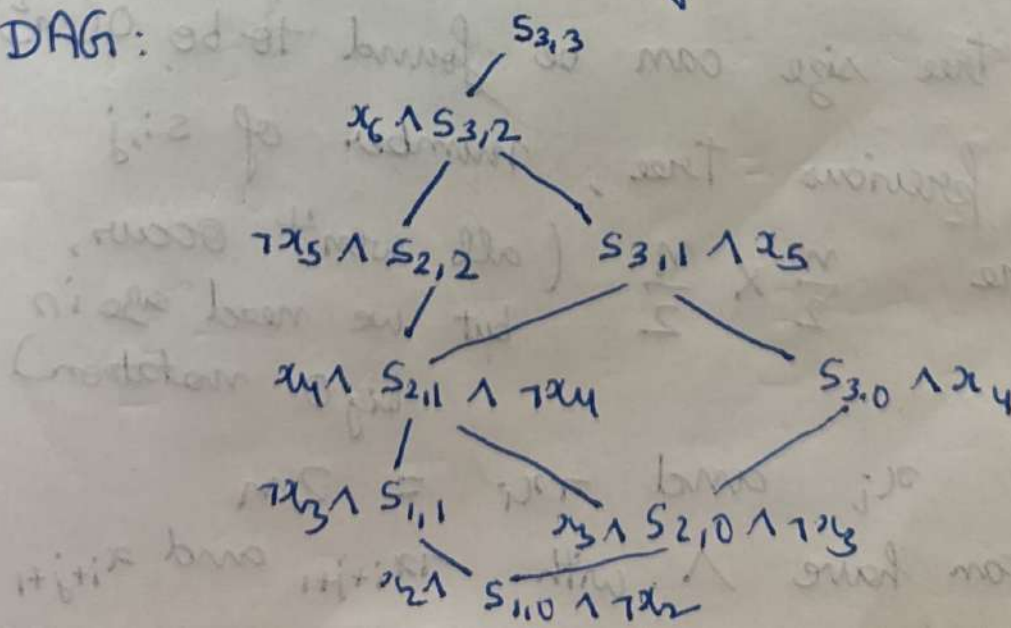 DAG:
S3,3
x6 ∧ S3,2
¬x5 ∧ S2,2 S3,1 ∧ x5
x4 ∧ S2,1 ∧ ¬x4 S3,0 ∧ x4
¬x3 ∧ S1,1 x3 ∧ S2,0 ∧ ¬x3
x2 ∧ S1,0 ∧ ¬x2